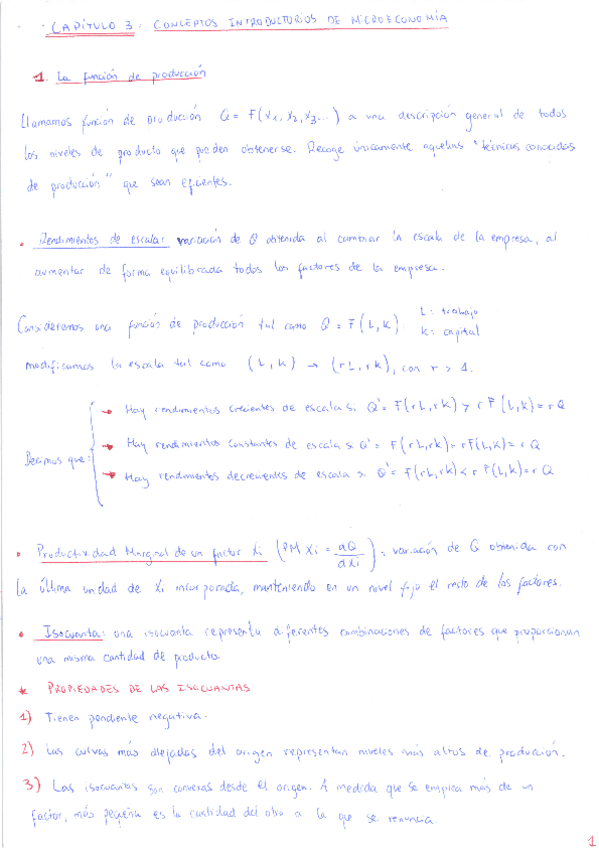 CAPÍTULO 3: CONCEPTOS INTRODUCTORIOS DE MICROECONOMÍA
1. La función de producción
Llamamos función de producción Q = F(x1, x2, x3...) a una descripción general de todos
los niveles de producto que pueden obtenerse. Recoge únicamente aquellas "técnicas conocidas
de producción" que sean eficientes.
• Rendimientos de escala: variación de Q obtenida al cambiar la escala de la empresa, al
aumentar de forma equilibrada todos los factores de la empresa.
Consideremos una función de producción tal como Q = F(L, K) L: trabajo
K: capital
modificamos la escala tal como (L, K) → (rL, rK), con r > 1.
Decimos que:
→ Hay rendimientos crecientes de escala si Q' = F(rL, rK) > r F(L, K) = r Q
→ Hay rendimientos constantes de escala si Q' = F(rL, rK) = r F(L, K) = r Q
→ Hay rendimientos decrecientes de escala si Q' = F(rL, rK) < r F(L, K) = r Q
• Productividad Marginal de un factor Xi (PM Xi = dQ/dXi) = variación de Q obtenida con
la última unidad de Xi incorporada, manteniendo en un nivel fijo el resto de los factores.
• Isocuanta: una isocuanta representa diferentes combinaciones de factores que proporcionan
una misma cantidad de producto.
* PROPIEDADES DE LAS ISOCUANTAS
1) Tienen pendiente negativa.
2) Las curvas más alejadas del origen representan niveles más altos de producción.
3) Las isocuantas son convexas desde el origen. A medida que se emplea más de un
factor, más pequeña es la cantidad del otro a la que se renuncia.
1